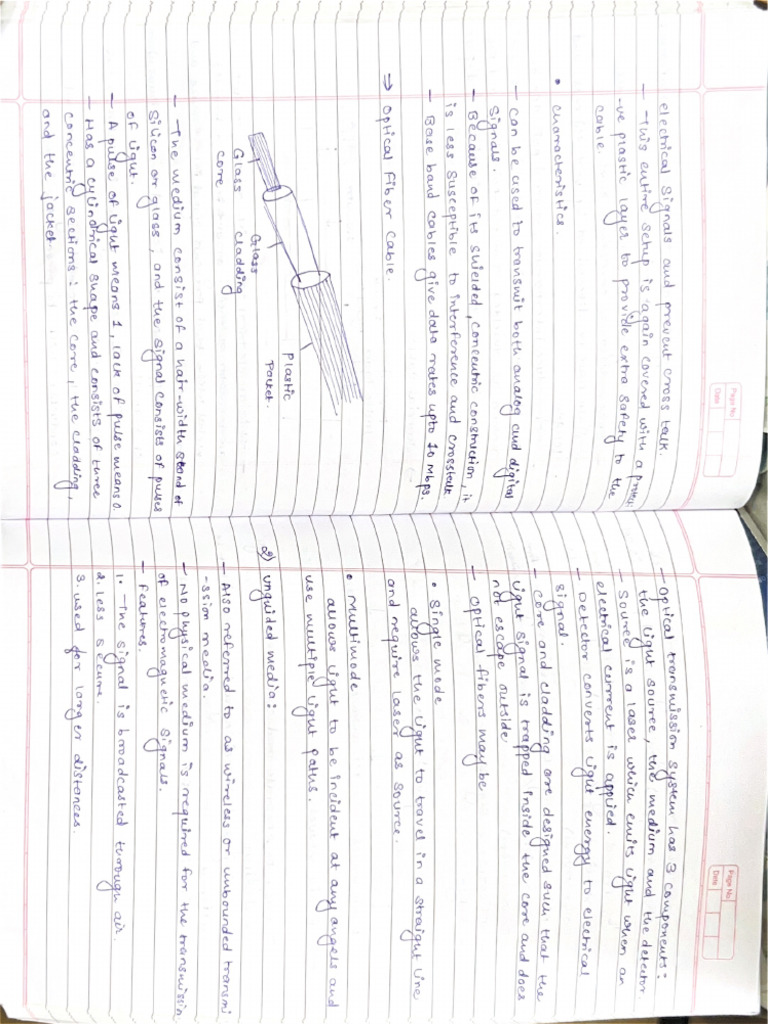 Page No
Date
electrical signals and prevent cross talk.
- This entire setup is again covered with a protecti
-ve plastic layer to provide extra safety to the
cable.
• characteristics
- can be used to transmit both analog and digital
signals.
- Because of its shielded, concentric construction, it
is less susceptible to interference and crosstalk
- Base band cables give data rates upto 10 Mbps.
→ Optical Fiber cable.
Plastic
Glass
cladding
Glass
core
- The medium consist of a hair-width strand of
silicon or glass, and the signal consists of pulses
of light.
- A pulse of light means 1, lack of pulse means 0.
- Has a cylindrical shape and consists of three
concentric sections : the core, the cladding,
and the jacket.
Page No
Date
- Optical transmission system has 3 components:
the light source, the medium and the detector
- Source is a laser which emits light when an
electrical current is applied.
- Detector converts light energy to electrical
signal.
- core and cladding are designed such that the
light signal is trapped inside the core and does
not escape outside
- Optical fibers may be
• single mode
allows the light to travel in a straight line
and require laser as source.
• Multimode
allows light to be incident at any angels and
use multiple light paths.
2) Unguided media:
- Also referred to as wireless or unbounded transmi
-ssion media.
- No physical medium is required for the transmissin
of electromagnetic signals.
- features.
1. The signal is broadcasted through air
2. less secure.
3. used for larger distances.